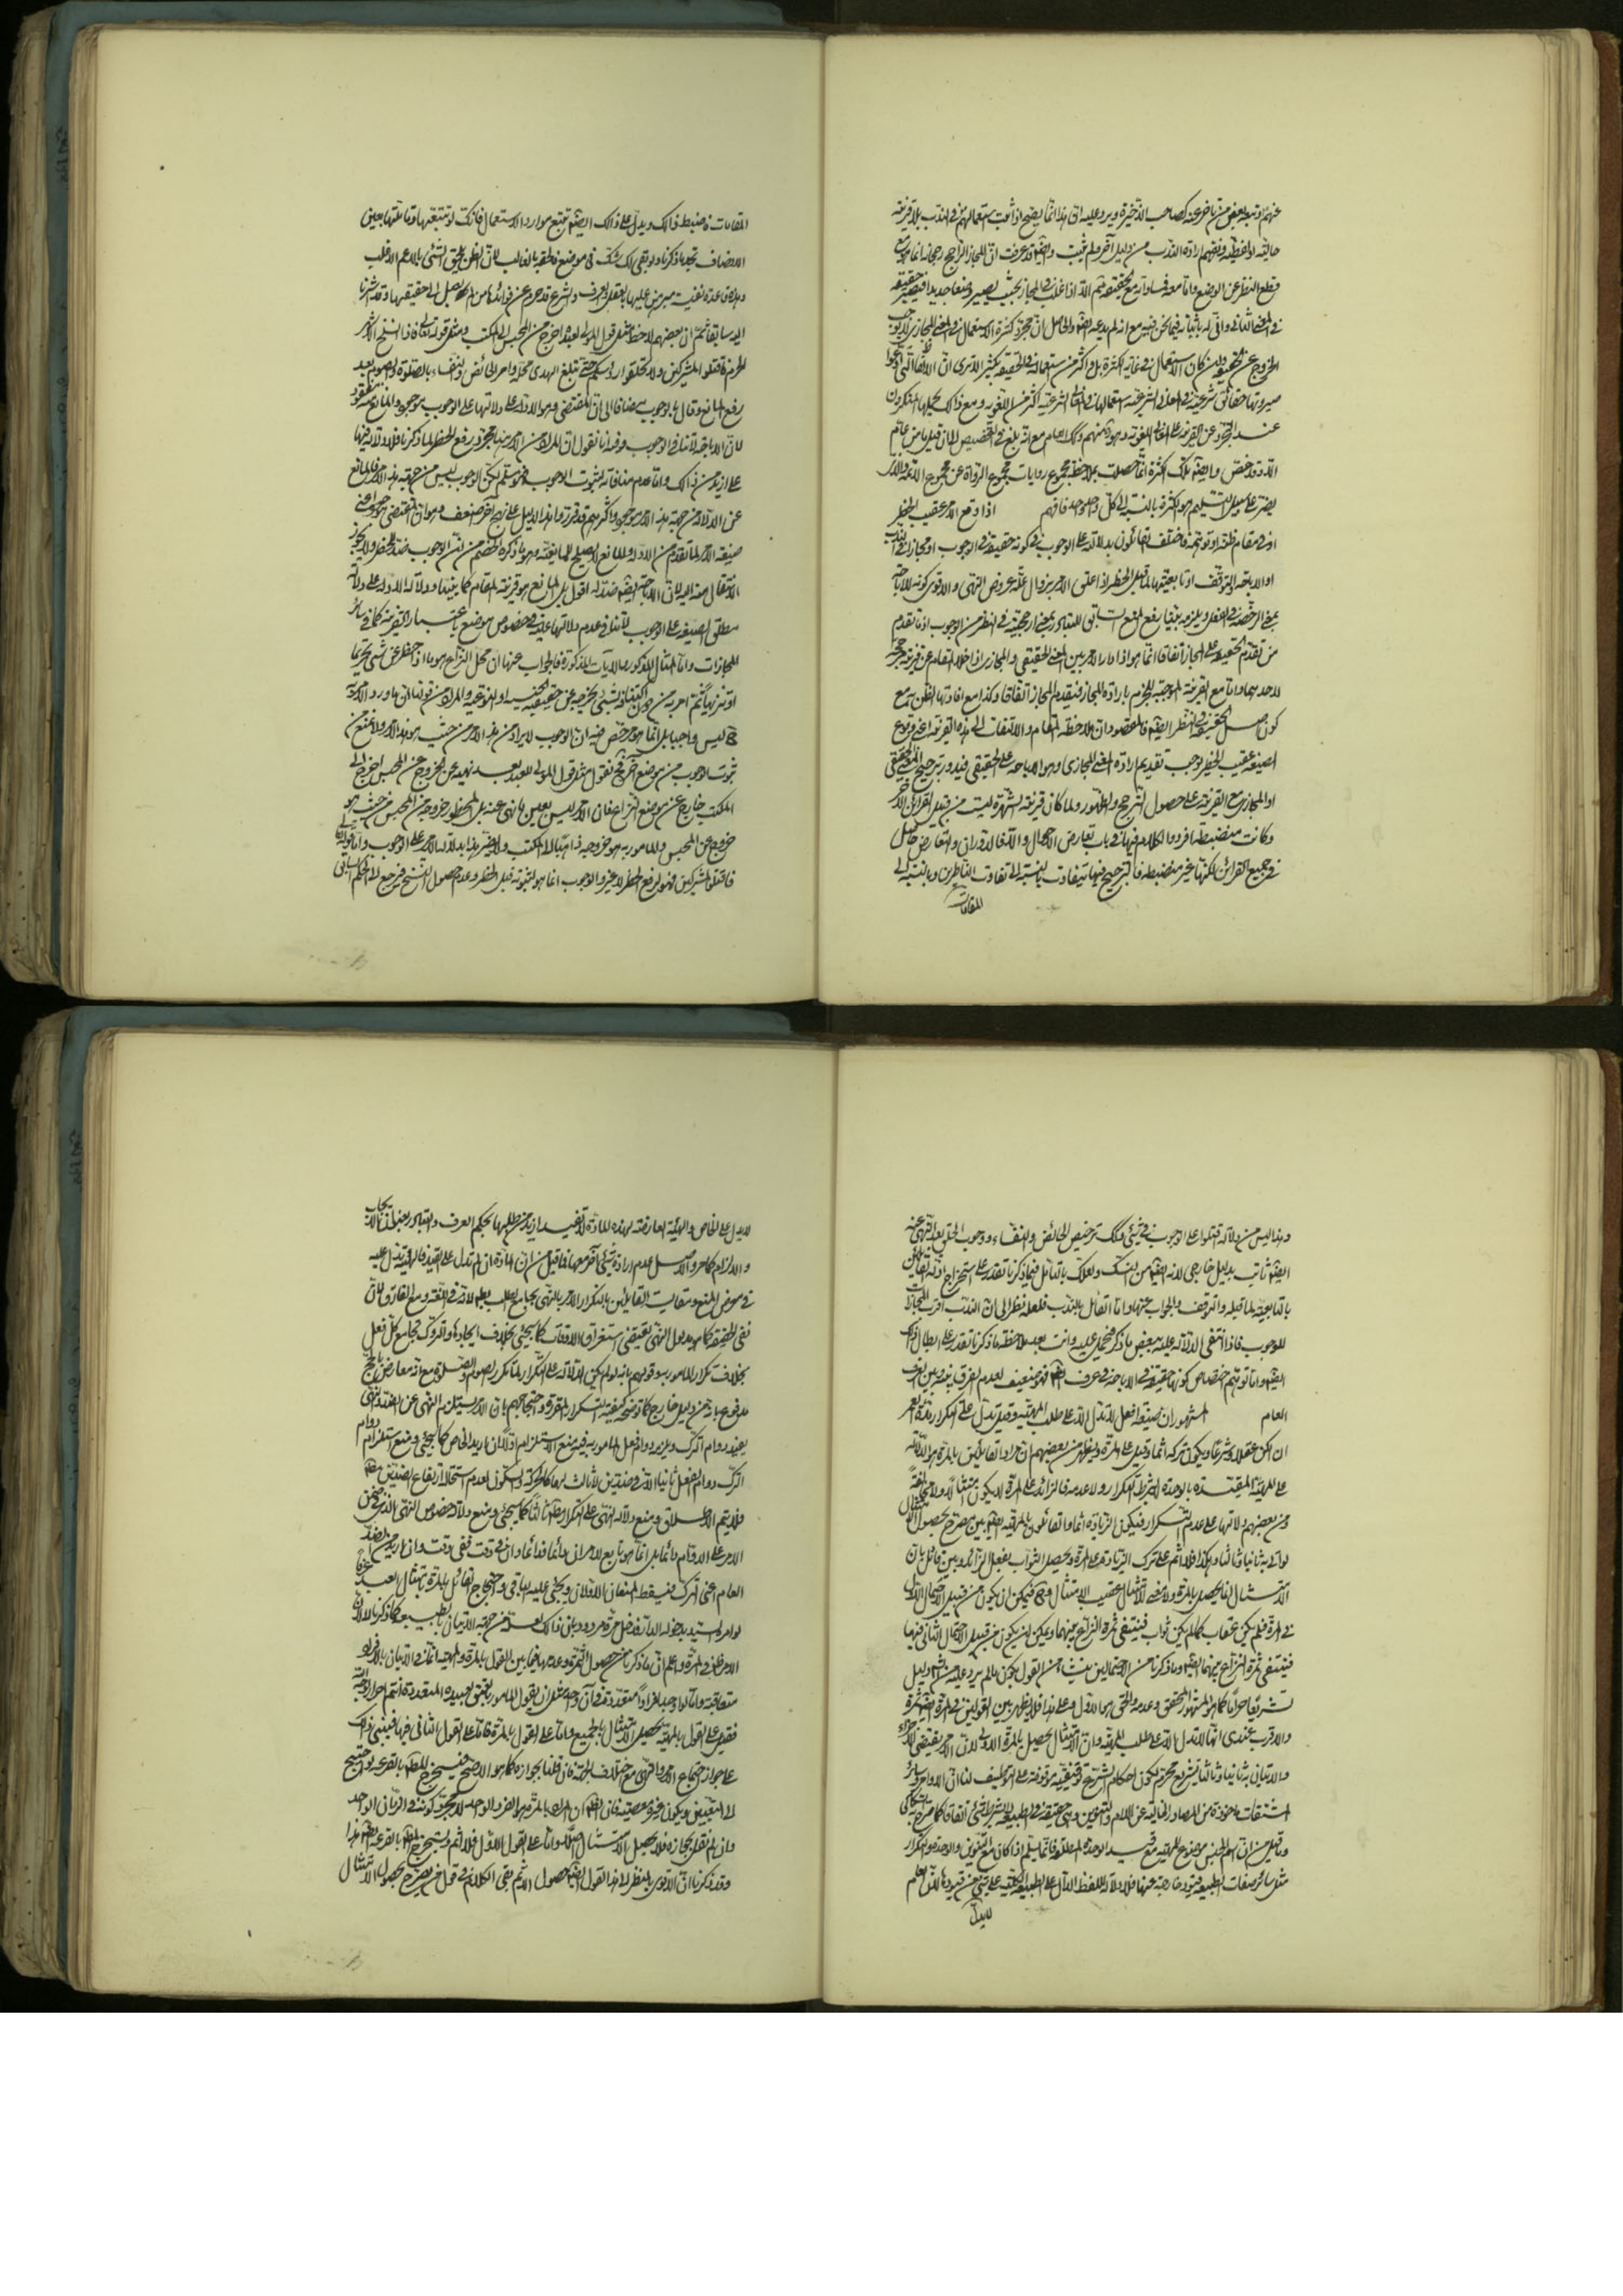 عنهم وتبعه بعض من تاخر عنه كصاحب الذخيرة ويرد عليه ان هذا انما يصح اذا ثبت استعمالهم في الندب بلا قرينة
حالية او لفظية وفهم ارادة الندب من دليل آخر ولم يثبت وايضا قد عرفت ان المجاز الراجح رجحانه انما هو مع
قطع النظر عن الوضع واما معه فمساواته مع الحقيقة ثم اذا غلب في المجاز بحيث يصير وضعا جديدا فيصير حقيقة
في المعنى الثاني واني له باثباته فيما نحن فيه مع انه لم يدعه ايضا والحاصل ان مجرد كثرة الاستعمال في المعنى المجازي لا يوجب
الخروج عن الحقيقة وان كان الاستعمال في غاية الكثرة بل واكثر من استعماله في الحقيقة بكثير الا ترى ان الالفاظ التي ادعوا
صيرورتها حقائق شرعية في المعاني الشرعية استعمالها في المعاني الشرعية اكثر من اللغوية ومع ذلك يحملها المنكرون
عند التجرد عن القرينة على المعاني اللغوية وهو منهم وكذا العام مع انه بلغ في التخصيص الى ان قيل ما من عام
الا وقد خص وايضا تلك الكثرة انما حصلت بملاحظة مجموع روايات مجموع الرواة عن مجموع الائمة والذي
يضر على سبيل التسليم هو الكثرة بالنسبة الى كل واحد واحد فافهم اذا وقع الامر عقيب الحظر
او في مقام ظنه او توهمه فاختلف القائلون بدلالته على الوجوب في كونه حقيقة في الوجوب او مجازا في الندب
او الاباحة او التوقف او تابعيته لما قبل الحظر اذا علق الامر بزوال علة عروض النهي والاقوى كونه للاباحة
بمعنى الرخصة في الفعل ويلزمه بقيا رفع المنع السابق للتبادر بمعنى ارجحيته في النظر من الوجوب اذ ما تقدم
من تقدم الحقيقة على المجاز اتفاقا انما هو اذا دار الامر بين المعنى الحقيقي والمجازي اذا خلا المقام عن قرينة مرجحة
لاحدهما واما مع القرينة الموجبة للجزم بارادة المجاز فيقدم المجاز اتفاقا وكذا مع افادتها الظن مع
كون اصل الحقيقة في النظر ايضا فالمقصود ان ملاحظة المقام والالتفات الى هذه القرينة اعني وقوع
الصيغة عقيب الحظر توجب تقديم ارادة المعنى المجازي وهو الاباحة على الحقيقي فيدور ترجيح المعنى الحقيقي
او المجازي مع القرينة على حصول الترجيح والظهور ولما كان قرينة الشهرة ليست من قبيل القرائن الاخر
وكانت منضبطة افردوا الكلام فيها في باب تعارض الاحوال والا فالدوران والتعارض حاصل
في جميع القرائن لكنها غير منضبطة فالترجيح فيها يتفاوت بالنسبة الى تفاوت الناظرين وبالنسبة الى
المقامات
المقامات فاضبط ذلك ويدل على ذلك ايضا تتبع موارد الاستعمال فانك لو تتبعتها وتاملتها بعين
الانصاف تجد ما ذكرنا ولو بقي لك شك في موضع فالحقه بالغالب لان الظن يلحق الشئ بالاعم الاغلب
وهذه قاعدة نفيسة مبرهن عليها بالعقل والعرف والشرع قد حرم عن فوائدها من لم يصل الى حقيقتها وقد اشرنا
اليه سابقا ثم ان بعضهم لاحظ مثل قول المولى لعبده اخرج من المحبس الى المكتب ومثل قوله تعالى فاذا انسلخ الاشهر
الحرم فاقتلوا المشركين ولا تحلقوا رؤسكم حتى تبلغ الهدي محله وامر الحائض والنفساء بالصلوة والصوم بعد
رفع المانع وقال بالوجوب مضافا الى ان المقتضي وهو الادلة على دلالتها على الوجوب موجود والمانع مفقود
لان الاباحة لا تنافي الوجوب وفيه انا نقول ان المراد من الامر هنا مجرد رفع الحظر لما ذكرنا فلا دلالة فيها
على ازيد من ذلك واما عدم منافاته لثبوت الوجوب فهو مسلم لكن الوجوب ليس من جهة هذا الامر فالمانع
عن الدلالة من جهة هذا الامر موجود واكثرهم قد قرروا هذا الدليل على نهج اخر اضعف وهو ان المقتضي موجود اعني
صيغة الامر لما تقدم من الادلة والمانع لا يصلح للمانعية وهو ما ذكره الخصم من ان الوجوب ضد الحظر ولا يجوز
الانتقال منه اليه لان الاباحة ايضا ضد له اقول بل المانع هو قرينة المقام كما بينا ودلالة الادلة على دلالة
مطلق الصيغة على الوجوب لا تنافي عدم دلالتها عليه في خصوص موضع باعتبار القرينة كما في سائر
المجازات واما المثال المذكور والآيات المذكورة فالجواب عنها ان محل النزاع هو ما اذا حظر عن شئ تحريما
او تنزيها ثم امر به من دون اكتنافه بشئ يخرجه عن حقيقة الجنسية او النوعية والمراد من قولنا ان ما ورد الامر به
ح ليس واجبا بل انما هو مرخص فيه ان الوجوب لا يراد من هذا الامر من حيث هو هذا الامر ولا نمنع من
ثبوت الوجوب من موضع آخر فح نقول مثل قول المولى للعبد بعد نهيه عن الخروج عن المحبس اخرج الى
المكتب خارج عن موضع النزاع فان الامر ليس بعين ما نهى عنه بل المحظور خروجه من المحبس من حيث هو
خروج عن المحبس والمامور به هو خروجه ذاهبا الى المكتب ولا يضر هذا بدلالة الامر على الوجوب واما قوله تعالى
فاقتلوا المشركين فهو لرفع الحظر لا غير والوجوب انما هو لثبوته قبل الحظر وعدم حصول النسخ فرجع الى الحكم السابق
وهذا ليس من دلالة اقتلوا على الوجوب في شئ وكذلك ترخيص الحائض والنفساء ووجوب الحلق بعد النهي عنه
ايضا ثابت بدليل خارجي لانه ايضا من النسك ولعلك بالتامل فيما ذكرنا تقدر على استخراج ادلة القائلين
بالتابعية لما قبله والتوقف والجواب عنها واما القائل بالندب فلعله نظر الى ان الندب اقرب المجازات
للوجوب فاذا انتفى الدلالة عليه ببعض ما ذكر فيحمل عليه وانت بعد ملاحظة ما ذكرنا تقدر على ابطال ذلك
ايضا واما توهم اختصاص كونها حقيقة في الاباحة في عرف الشارع فهو ضعيف لعدم الفرق بينه وبين العرف
العام المشهور ان صيغة افعل لا تدل الا على طلب المهية وقيل تدل على التكرار مدة العمر
ان امكن عقلا وشرعا ويكون تركه اثما وقيل على المرة ويظهر من بعضهم ان مراد القائلين بالمرة هو الدلالة
على المهية المقيدة بالوحدة لا بشرط التكرار ولا عدمه فالزائد على المرة لا يكون امتثالا ولا مخالفة
ومن بعضهم دلالتها على عدم التكرار فيكون الزيادة اثما والقائلون بالمهية ايضا بين مصرح بحصول الامتثال
لو اتى به ثانيا وثالثا وهكذا فلا اثم على ترك الزيادة على المرة ويحصل الثواب بفعل الزائد وبين قائل بان
الامتثال انما يحصل بالمرة ولا معنى للامتثال عقيب الامتثال وح فيمكن ان يكون من قبيل الاحتمال الاول
في المرة فلم يكن عقاب كما لم يكن ثواب فينتفي ثمرة النزاع بينهما ويمكن ان يكون من قبيل الاحتمال الثاني فيها
فينتفي ثمرة النزاع بينهما ايضا وما ذكرنا من الاحتمالين ينشأ من القول بكون ما لم يرد عليه من الشارع دليل
تشريعا حراما كما هو المشهور المحقق وعدمه والحق هو الاول وعلى هذا فلا يظهر بين القولين في المرة ايضا ثمرة
والاقرب عندي انها لا تدل الا على طلب المهية وان الامتثال يحصل بالمرة الاولى لان الامر يقتضي الاجزاء
والاتيان به ثانيا وثالثا تشريع محرم لكون احكام الشرع توقيفية موقوفة على التوظيف لنا ان الاوامر وسائر
المشتقات ماخوذة من المصادر الخالية عن اللام والتنوين وهي حقيقة في الطبيعة لا بشرط شئ اتفاقا كما صرح به السكاكي
وما قيل من ان اسم الجنس موضوع للمهية مع قيد الوحدة المطلقة فانما يسلم اذا كان مع التنوين والوحدة والتكرار
مثل سائر صفات الطبيعة قيود خارجة عنها فلا دلالة للفظ الدال على الطبيعة الكلية على شئ من قيودها لان العام
لا يدل
لا يدل على الخاص والهيئة العارضة لهذه المادة لا تفيد ازيد من طلبها بحكم العرف والتبادر بعنوان الايجاب
والالزام كما مر والاصل عدم ارادة شئ آخر معها فما قيل من ان المادة ان لم تدل على القيد فالهيئة تدل عليه
في معرض المنع وقياس القائلين بالتكرار الامر بالنهي بجامع الطلب باطل لانه في اللغة ومع الفارق لان
نفي الحقيقة كما هو مدلول النهي يقتضي استغراق الاوقات كما سيجئ بخلاف ايجادها والتروك تجامع كل فعل
بخلاف تكرار المامور به وقولهم بانه لو لم يكن للدلالة على التكرار لما تكرر الصوم والصلوة مع انه معارض بالحج
مدفوع بانه من دليل خارج كما توضحه كيفية التكرار المقررة واحتجاجهم بان الامر يستلزم النهي عن الضد والنهي
يفيد دوام الترك ويلزمه دوام فعل المامور به فيه منع الاستلزام اولا ان اريد الخاص كما سيجئ ومنع استلزام دوام
الترك دوام الفعل ثانيا الا في ضدين لا ثالث لهما كالحركة والسكون لعدم استحالة ارتفاع الضدين مطلقا
فلا يتم الاطلاق ومنع دلالة النهي على التكرار مطلقا ثالثا كما سيجئ ومنع دلالة خصوص النهي الذي في ضمن
الامر على الدوام دائما بل انما هو تابع للامر ان دائما فدائما وان في وقت ففي وقت وان اريد من الضد
العام اعني الترك فيسقط المنعان الاولان ويجئ عليه الباقي واحتجاج القائل بالمرة بامتثال العبد عرفا
لو امره السيد بدخول الدار فدخل مرة مردود بان ذلك لعله من جهة الاتيان بالطبيعة كما ذكرنا لا لان
الامر ظاهر في المرة واعلم ان ما ذكرنا من حصول الثمرة وعدمها فيما بين القول بالمرة والمهية انما في الاتيان بالافراد
متعاقبة واما لو اوجد افرادا متعددة في آن واحد مثل ان يقول المامور بالعتق لعبيده المتعددة انتم احرار لوجه الله
فقيل على القول بالمهية يحصل الامتثال بالجميع واما على القول بالمرة فاما على القول الثاني فيها فيبنى ذلك
على جواز اجتماع الامر والنهي مع اختلاف الجهة فان قلنا بجوازه كما هو الاصح فيستخرج المطلوب بالقرعة لو احتيج
الى التعيين ويكون غيره معصية فان الظاهر ان المراد بالمرة هو الفرد الواحد لا مجرد كونه في الزمان الواحد
وان لم نقل بجوازه فلا يحصل الامتثال اصلا واما على القول الاول فلا اثم ويستخرج المطلوب بالقرعة ايضا هذا
وقد ذكرنا ان الاقوى بالنظر الى هذا القول ايضا حصول الاثم بقي الكلام في قول من يصرح بحصول الامتثال